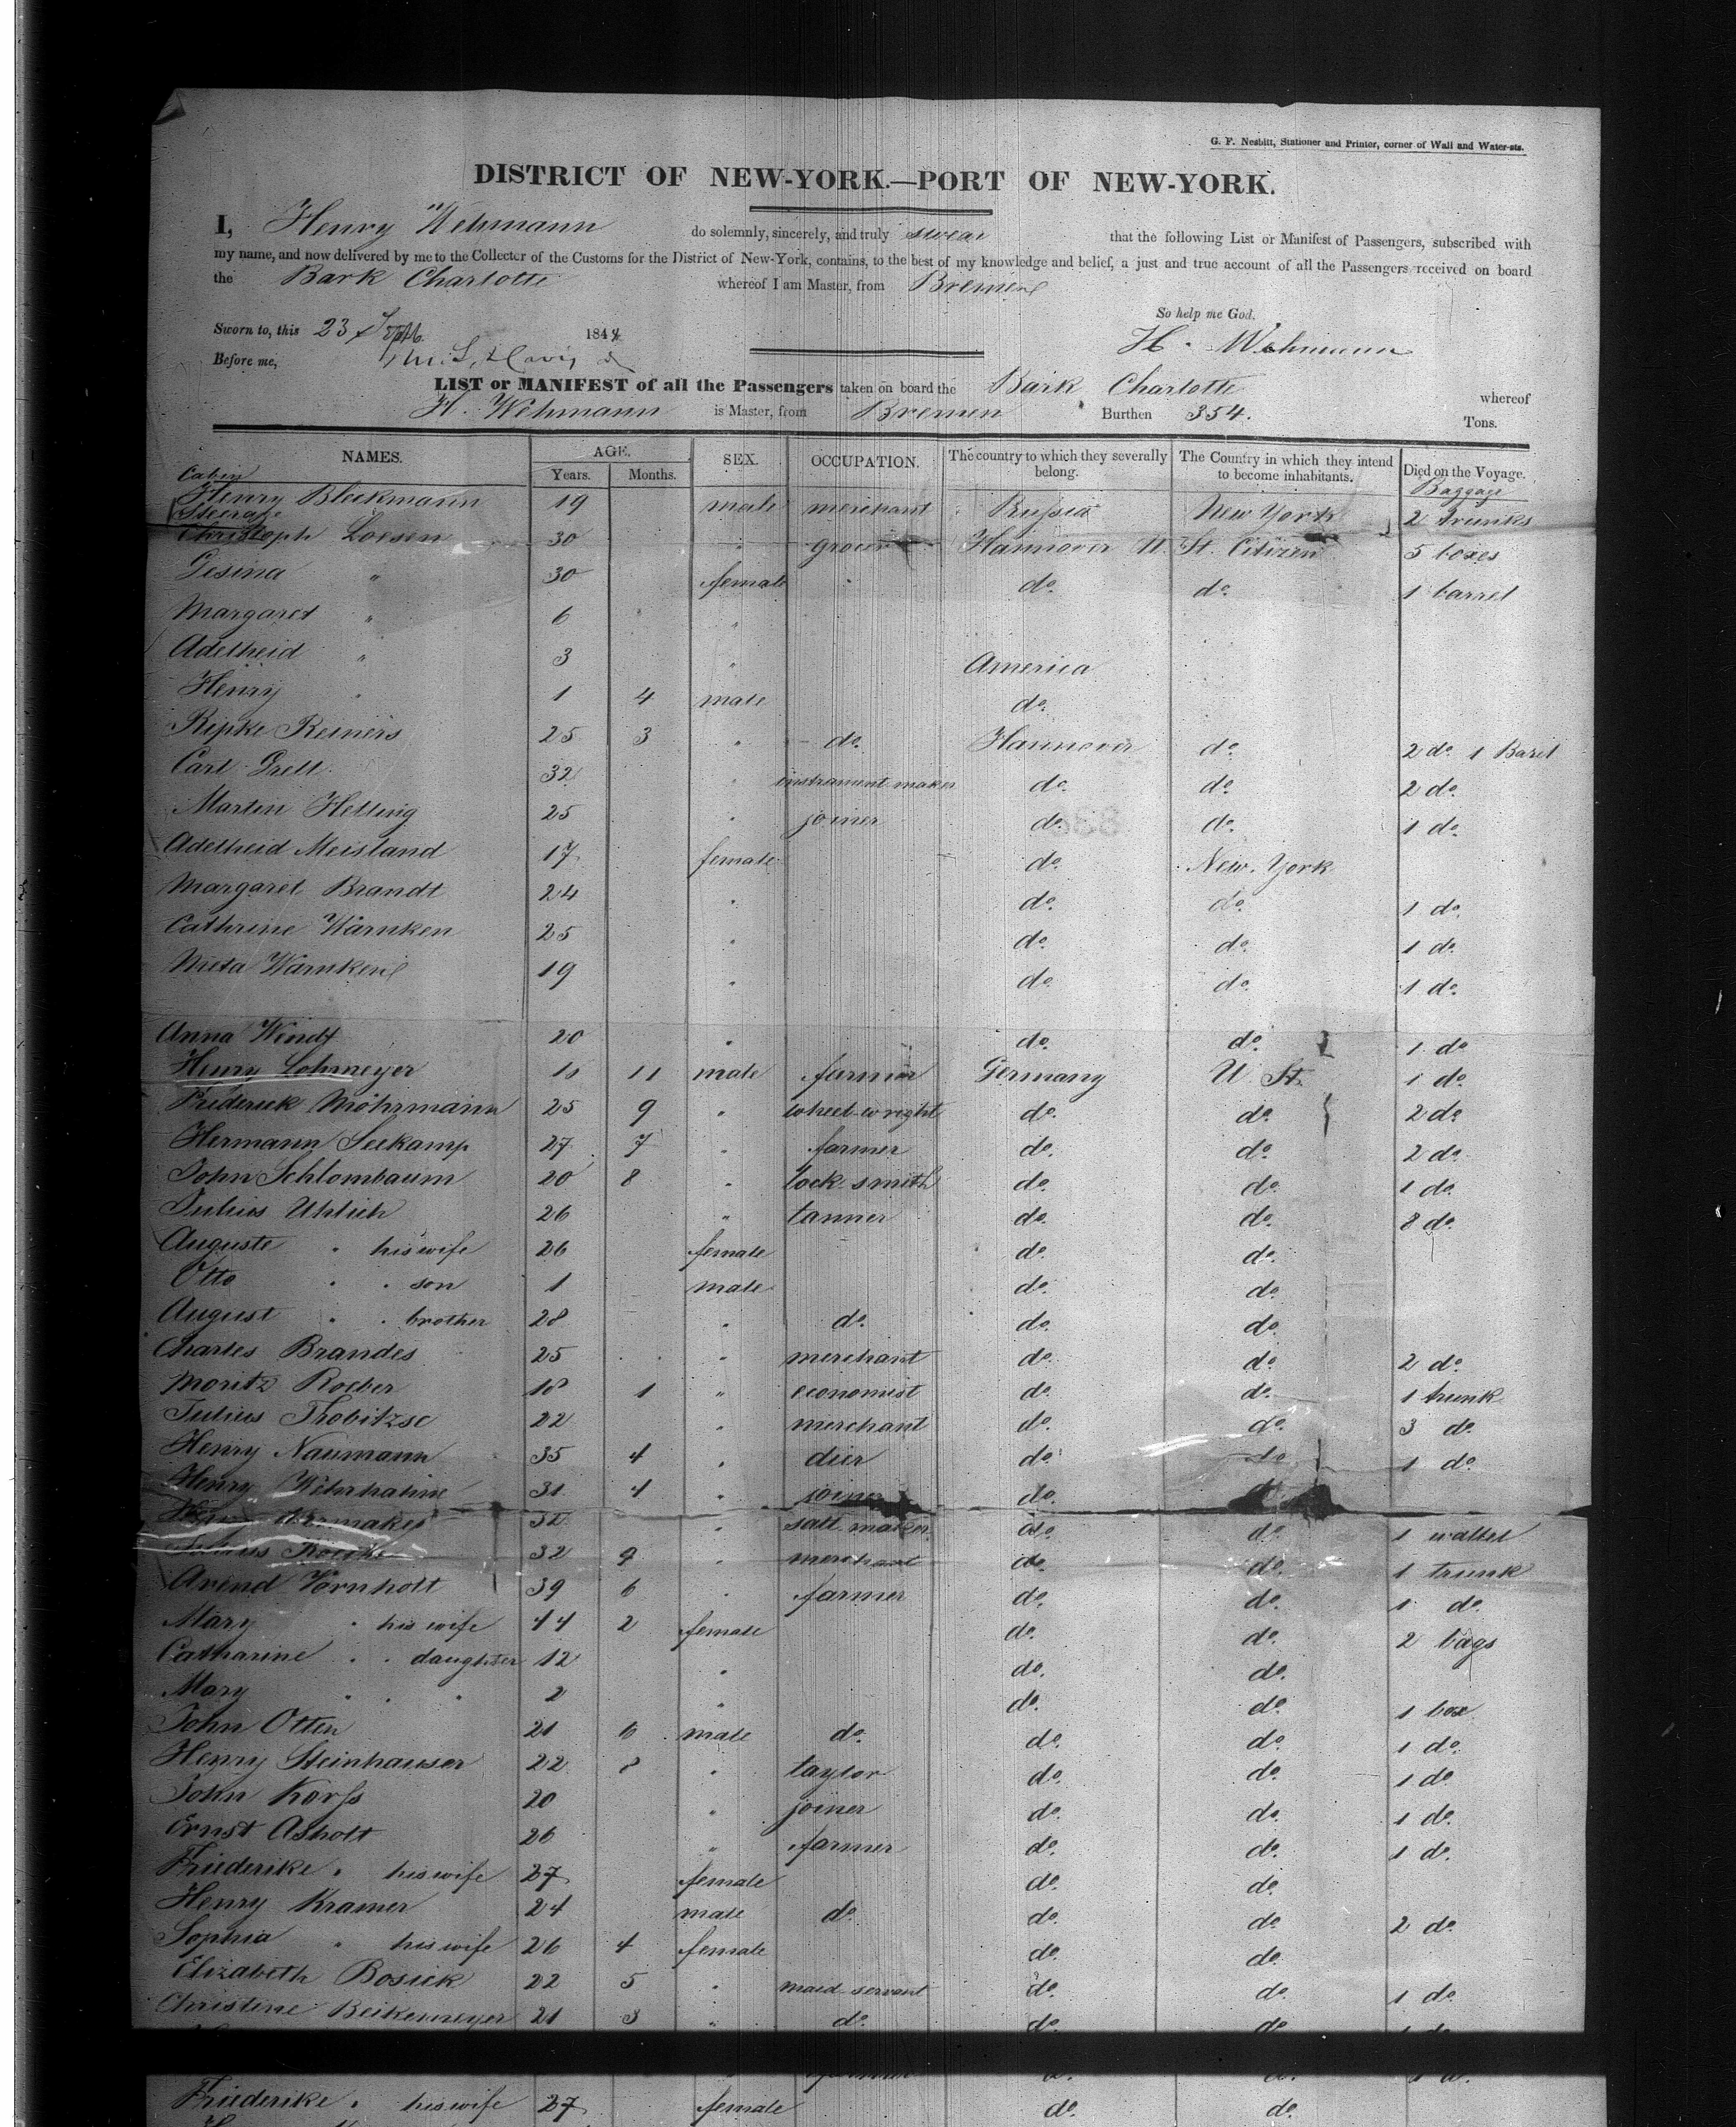 G. F. Nesbitt, Stationer and Printer, corner of Wall and Water-sts.
DISTRICT OF NEW-YORK.—PORT OF NEW-YORK.
I, Henry Wehmann do solemnly, sincerely, and truly swear that the following List or Manifest of Passengers, subscribed with
my name, and now delivered by me to the Collector of the Customs for the District of New-York, contains, to the best of my knowledge and belief, a just and true account of all the Passengers received on board
the Bark Charlotte whereof I am Master, from Bremen
So help me God.
Sworn to, this 23 Sept 1844 H. Wehmann
Before me,
LIST or MANIFEST of all the Passengers taken on board the Bark Charlotte whereof
H. Wehmann is Master, from Bremen Burthen 354. Tons.
NAMES. AGE. Years. Months. SEX. OCCUPATION. The country to which they severally belong. The Country in which they intend to become inhabitants. Died on the Voyage.
Cabin Baggage
Henry Bleckmann 19 male merchant Russia New York 2 trunks
Steerage
Christoph Loesen 30 " grocer Hannover U. St. Citizen 5 boxes
Gesina " 30 female do. do. 1 barrel
Margaret " 6 "
Adelheid " 3 " America
Henry " 1 4 male do.
Ripke Reiners 25 3 " do. Hannover do. 2 do. 1 Barel
Carl Grell 32 " instrument maker do. do. 2 do.
Martin Helling 25 " joiner do. do. 1 do.
Adelheid Meisland 17 female do. New York
Margaret Brandt 24 " do. do. 1 do.
Cathrine Wärnken 25 " do. do. 1 do.
Meta Warnken 19 " do. do. 1 do.
Anna Windt 20 " do. do. 1 do
Henry Lohmeyer 11 male farmer Germany U St. 1 do.
Friderick Möhrmann 25 9 " wheel-wright do. do. 2 do
Hermann Seekamp 27 7 " farmer do. do. 2 do.
John Schlombaum 20 8 " lock-smith do. do. 1 do.
Julius Uhlich 26 " tanner do. do. 8 do.
Auguste " his wife 26 female do. do.
Otto " " son 1 male do. do.
August " " brother 28 " do. do. do.
Charles Brandes 25 " merchant do. do. 2 do.
Moritz Roeber 18 1 " economist do. do. 1 trunk
Julius Throbitzsc 22 " merchant do. do. 3 do.
Henry Naumann 35 4 " dier do. do 1 do.
Henry 31 4 " joiner do.
32 " salt maker do. do. 1 wallet
32 9 " merchant do. do. 1 trunk
Arend Vornholt 39 6 " farmer do. do. 1 do.
Mary " his wife 44 2 female do. do. 2 bags
Catharine " " daughter 12 " do. do.
Mary " " " 2 " do. do. 1 box
John Otten 21 6 male do. do. do. 1 do.
Henry Steinhauser 22 8 " taylor do. do. 1 do
John Korss 20 " joiner do. do. 1 do.
Ernst Asholt 26 " farmer do. do. 1 do.
Friederike " his wife 27 female do. do.
Henry Kramer 24 male do. do. do 2 do.
Sophia " his wife 26 4 female do. do.
Elizabeth Bosick 22 5 " maid-servant do. do. 1 do.
Christine Beikemeyer 21 3 " do. do. do
Friederike " his wife 27 female do. do.